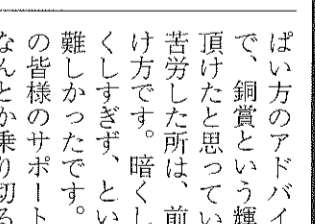 ぱい方のアドバイ
で、銅賞という輝
頂けたと思ってい
苦労した所は、前
け方です。暗くし
くしすぎず、とい
難しかったです。
の皆様のサポート
なんとか乗り切る